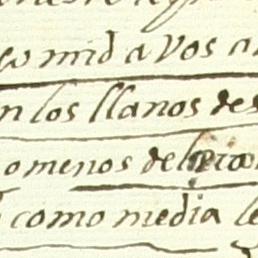 comida vos a
n los llanos des
omenos del
como media le